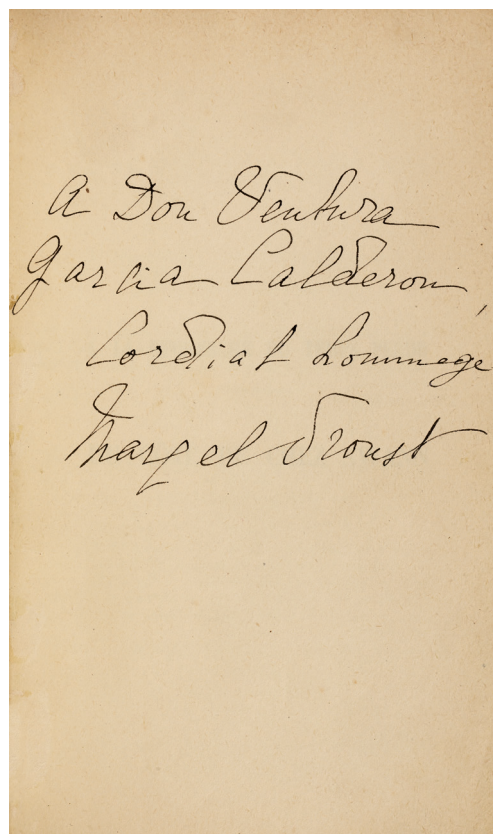 A Don Ventura
Garcia Calderon,
Cordial hommage
Marcel Proust